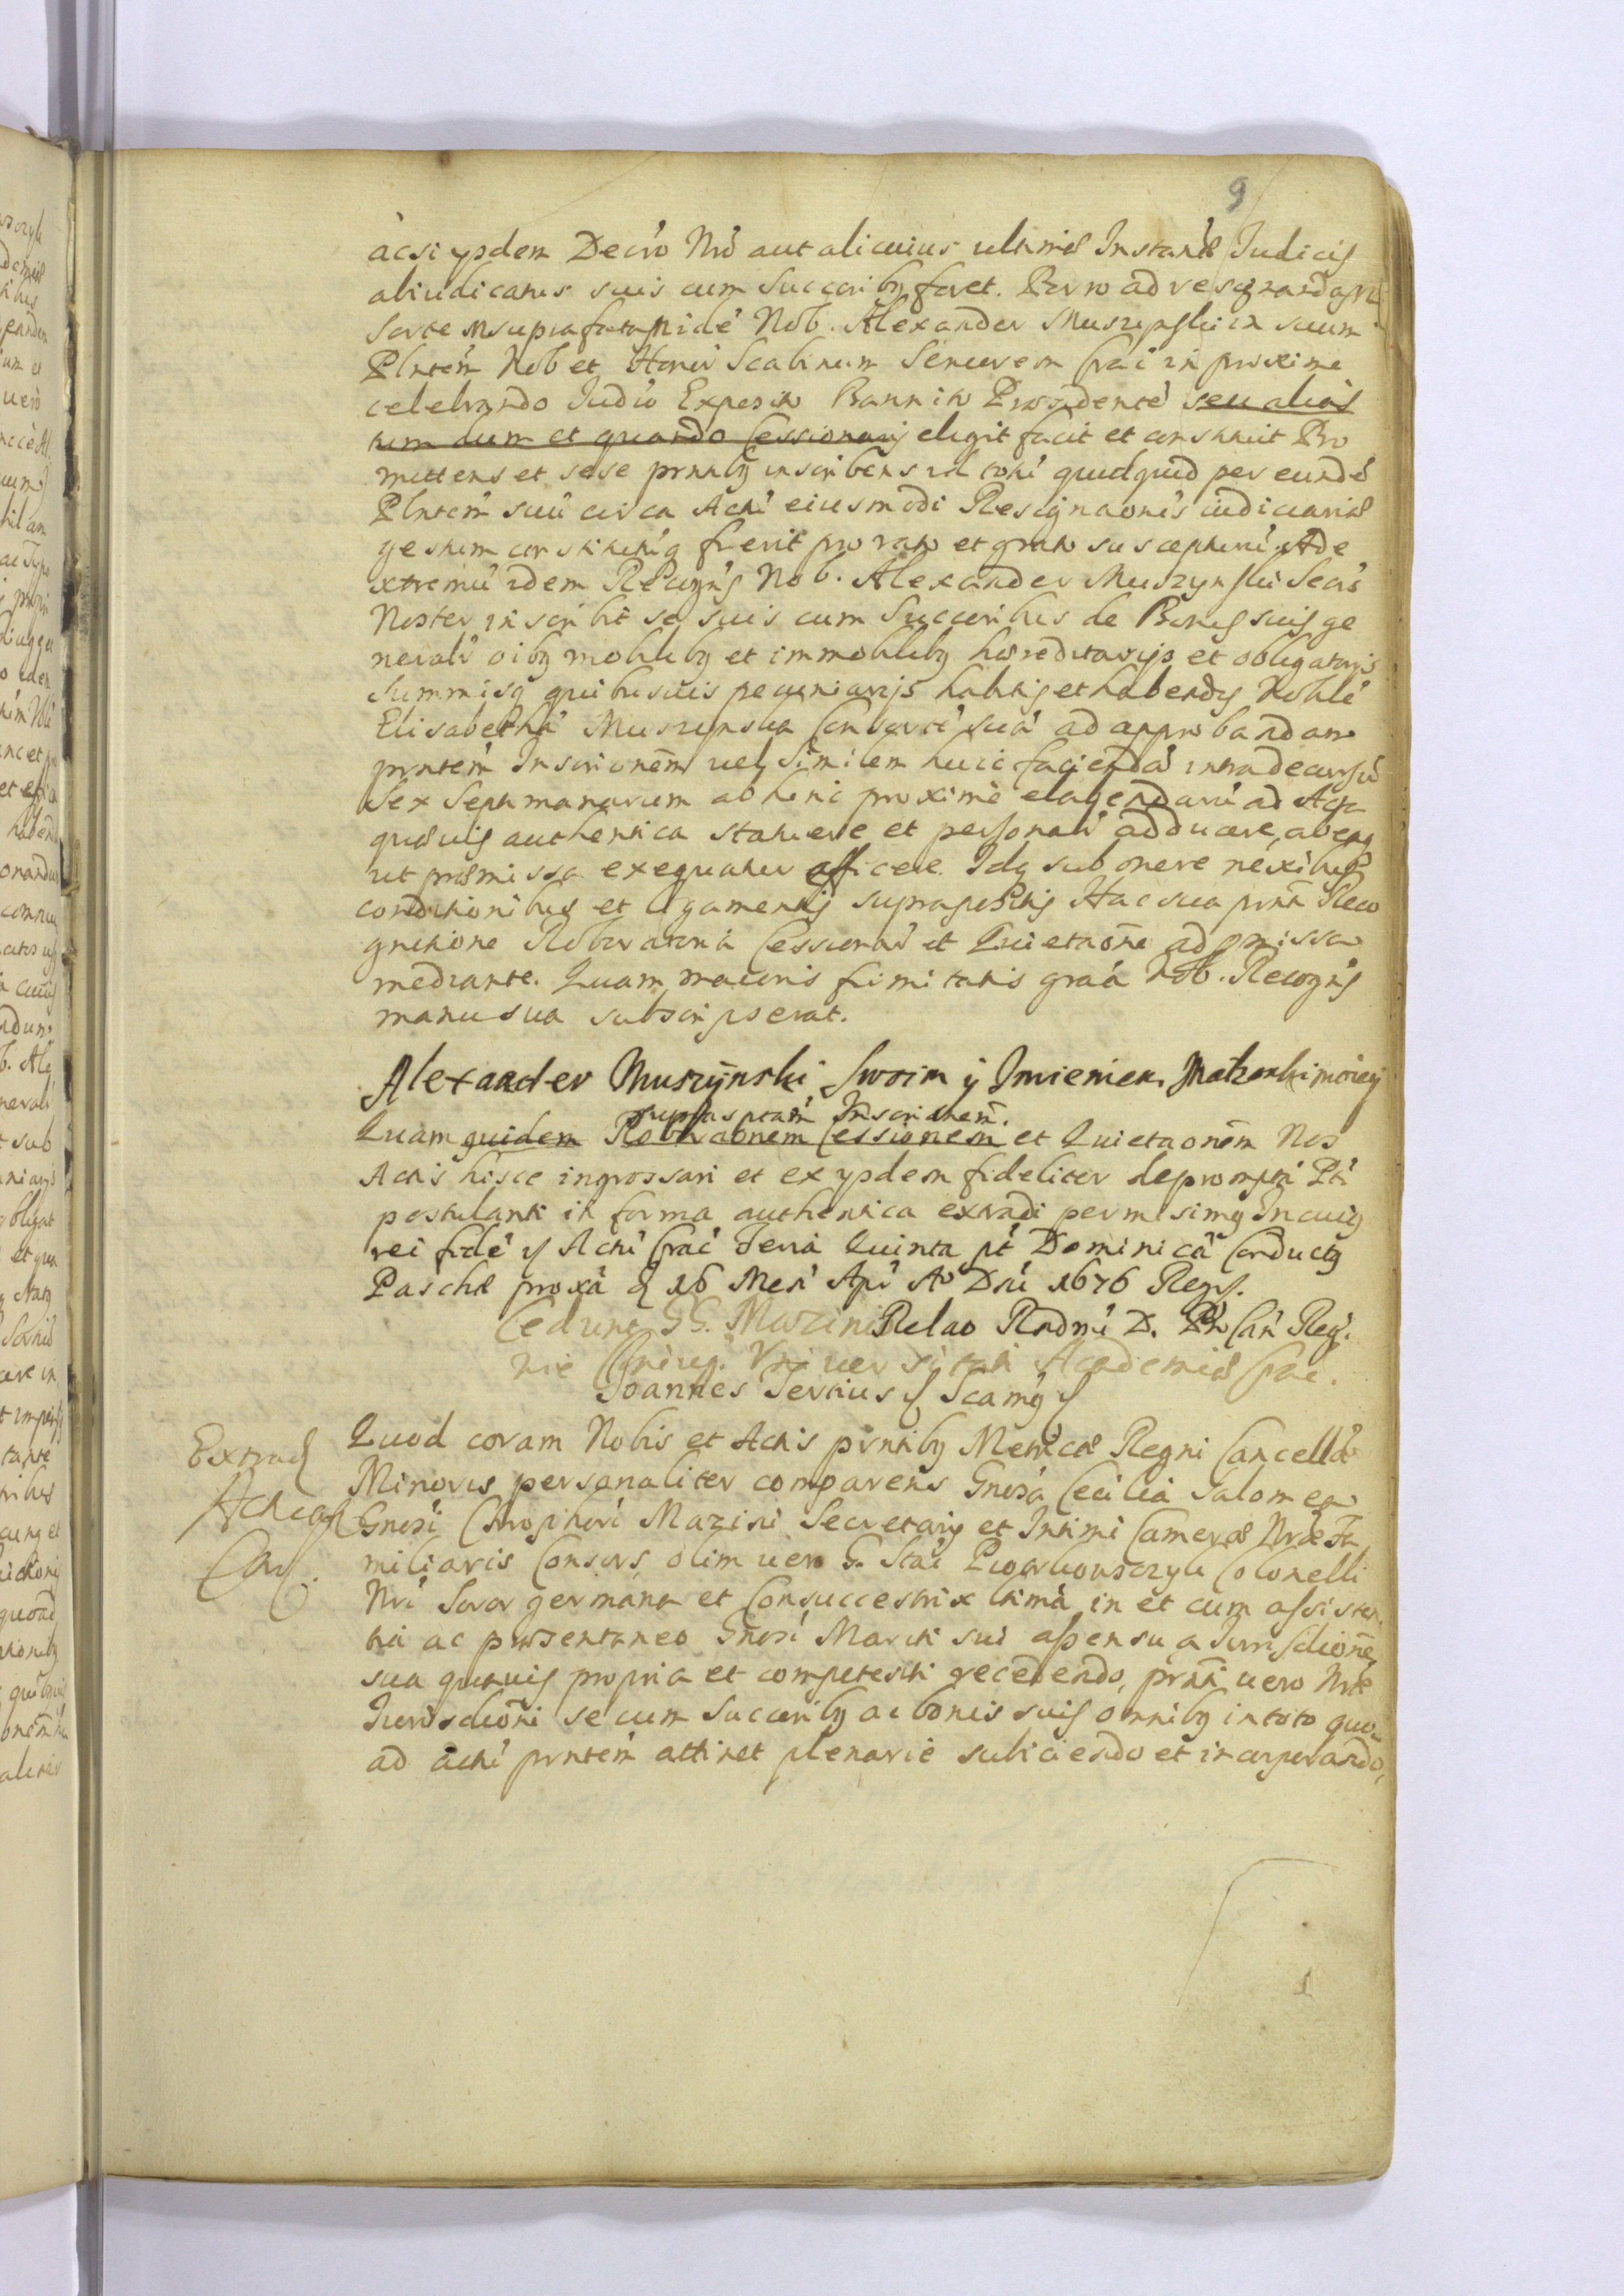 9
àcsi ysdem Decr̃o Nr̃o aut alicuius ultimæ Instantiæ Judicijs
abiudicatus suis cum Succorib9 foret. Porro ad resignandam
Sortem supra fatam idē Nob. Alexander Muszynski in suum
Plntem̃ Nob et Honor Scabinum Seniorem Crac̃ in proxime
celebrando Judicio Exposito Bannito Præsidentē seu alias
tum dum et quando Cessionarij elegit facit et constituit Pro
mittens et sese prntib9 inscribens id totũ quidquid per eundē
Plntem̃ suũ circa Actũ eiusmodi Resignaonis iudiciariæ
gestum constitutũq fuerit pro rato et grato suscepturũ. Ad e
xtremũ idem Recogns Nob. Alexander Muszynski Secr̃s
Noster inscribit se suis cum Succoribus de Bonis suis ge
neralr oib9 mobilib9 et immobilib9 hæreditarijs et obligatorijs
Summisq quibusuis pecuniarijs habitis et habendis Noblē
Elisabethã Muszynska Consortē suã ad approbandam
prntem̃ Inscrionem̃ uel similem huic faciendã intra decursũ
Sex Septimanarum ab hinc proximè elabendarũ ad Acta
quæuis authentica statuere et personalr adducere, ab eaq
ut præmissa exequatur efficere. Idq sub onere nexibus
conditionibus et ligamentis suprapositis Hac sua prnti Reco
gnitione Roboratoria Cessionali et Quietaone ad præmissa
mediante. Quam maioris firmitatis graã Nob. Recogns
manu sua subscripserat.
Alexander Muszÿnski Swoim ÿ Imieniem Małzonki moieÿ
suprascptam̃ Inscrionem̃.
Quam quidem Roboraonem Cessionem̃ et Quietaonem̃ Nos
Actis hisce ingrossari et ex ysdem fideliter depromptã Pti
postulanti in forma authentica extradi permisimq In cuiq
rei fidē Actũ Crac̃ Feria Quinta pt Dominicã Conductq
Paschæ proxã d 16 Mens Apr Aº Dni 1676 Regs.
Cedunt GG. Mazini Relao Rndmi D. Pro Can Reg.
Uniuersitati Academiæ Crac.
Joannes Tertius
Extrad
Quod coram Nobis et Actis prntib9 Metricæ Regni Cancellæ
Minoris personaliter comparens Gnosa Cecilia Salomea
Gnosi Chrophori Mazini Secretarij et Intimi Cameræ Nræ Fa
miliaris Consors olim uero G. Stai Piwarkowszczyk Colonelli
Nri Soror germana et Consuccestrix ltima in et cum assisten
tia ac præsentaneo Gnosi Mariti sui assensu a Jurisdione
sua quauis propria et competenti recedendo, prnti uero Nræ
Jurisdioni se cum Succorib9 ac bonis suis omnib9 in toto quo
ad actũ prntem̃ attinet plenarie subiciendo et incorporando,